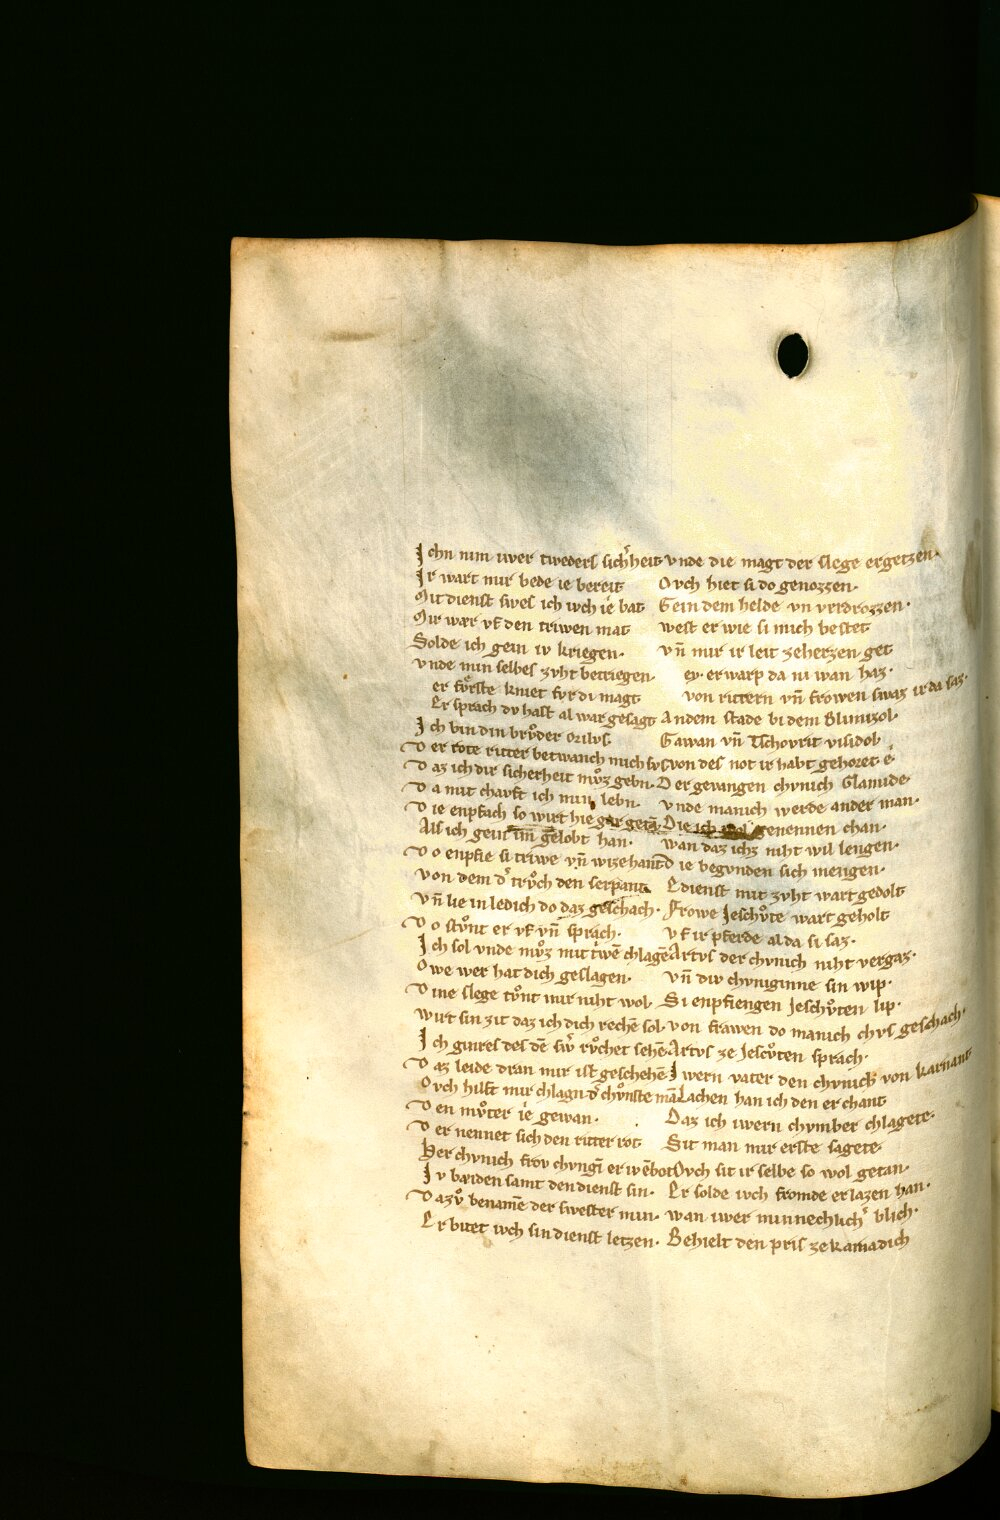 Ichn nim iwer tweders sichͬheit
Ir wart mir bede ie bereit
Mit dienst swes ich iuch ie bat
Mir wær vf den triwen mat
Solde ich gein iv kriegen·
vnde min selbes zvht betriegen·
er fvͦrste kniet fvr di magt
Er sprach dv hast al war gesagt
Ich bin din brvͦder orilvs·
Der rote ritter betwanch mich svs
Daz ich dir sicherheit mvͦz gebn·
Da mit charft ich min lebn·
Die enpfach so wirt hie gar getā
Als ich gein im gelobt han·
Do enpfie si triwe vn̄ wizehant
von dem dͬ trvͦch den serpant
vn̄ lie in ledich do daz geschach·
Do stvͦnt er vf vn̄ sprach·
Ich sol vnde mvͦz mit triwē chlagē
Owe wer hat dich geslagen·
Dine slege tvͦnt mir niht wol
wirt sin zit daz ich dich rechē sol·
Ich ginres des dē swͬ rvͦchet sehē
Daz leide dran mir ist geschehē
Ovch hilft mir chlagn dͬ chvͦnste mā
Den mvͦter ie gewan·
Der nennet sich den ritter rot
Her chvnich frov chvngī er iwēbot
Iv baiden samt den dienst sin·
Dazvͦ benamē der swester min·
Er bitet iuch sin dienst letzen·
vnde die magt der slege ergetzen·
Ovch hiet si do genozzen·
Gein dem helde vn vrdrozzen·
west er wie si mich bestet
vn̄ mir ir leit zeherzen get
ey· er warp da ni wan haz·
von rittern vn̄ frowen swaz ir da saz·
Andem stade bi dem Blimizol·
Gawan vn̄ Tschovrit visidol
von des not ir habt gehoret e·
Der gevangen chvnich Clamide
vnde manich werde ander man·
Die ich wol genennen chan·
wan daz ichz niht wil lengen·
Die begvnden sich mengen·
E dienst mit zvht wart gedolt
Frowe Jeschvͦte wart geholt
vf ir pferde al da si saz·
Artvs der chvnich niht vergaz·
vn̄ div chvniginne sin wip·
Si enpfiengen Jeschvͦten lip·
von frawen do manich chvs geschach·
Artvs ze Jescvͦten sprach·
Iwern vater den chvnich von karnant
Lachen han ich den er chant
Daz ich iwern chvmber chlagete·
Sit man mir erste sagete·
Ovch sit ir selbe so wol getan·
Er solde iuch fromde erlazen han·
wan iwer minnechlichͬ blich·
Behielt den pris ze kamadich